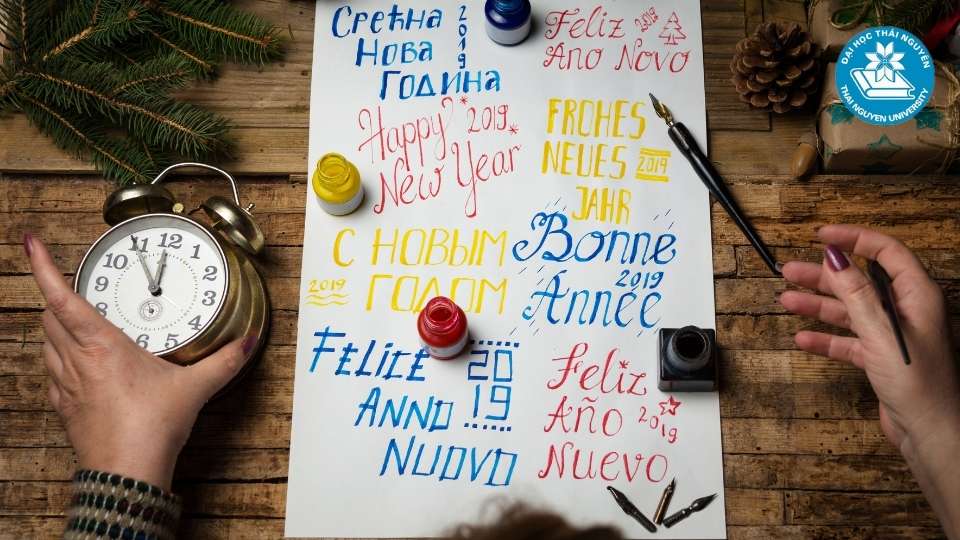 Срећна 2019
Нова
Година
Feliz 2019
Ano Novo
Happy 2019
New Year
FROHES
NEUES 2019
JAHR
С НОВЫМ
2019 ГОДОМ
Bonne
2019
Année
FELICE 20
ANNO 19
NUOVO
Feliz
Año 2019
Nuevo
12
11
1
10
2
9
3
8
4
7
6
5
ĐẠI HỌC THÁI NGUYÊN
THAI NGUYEN UNIVERSITY